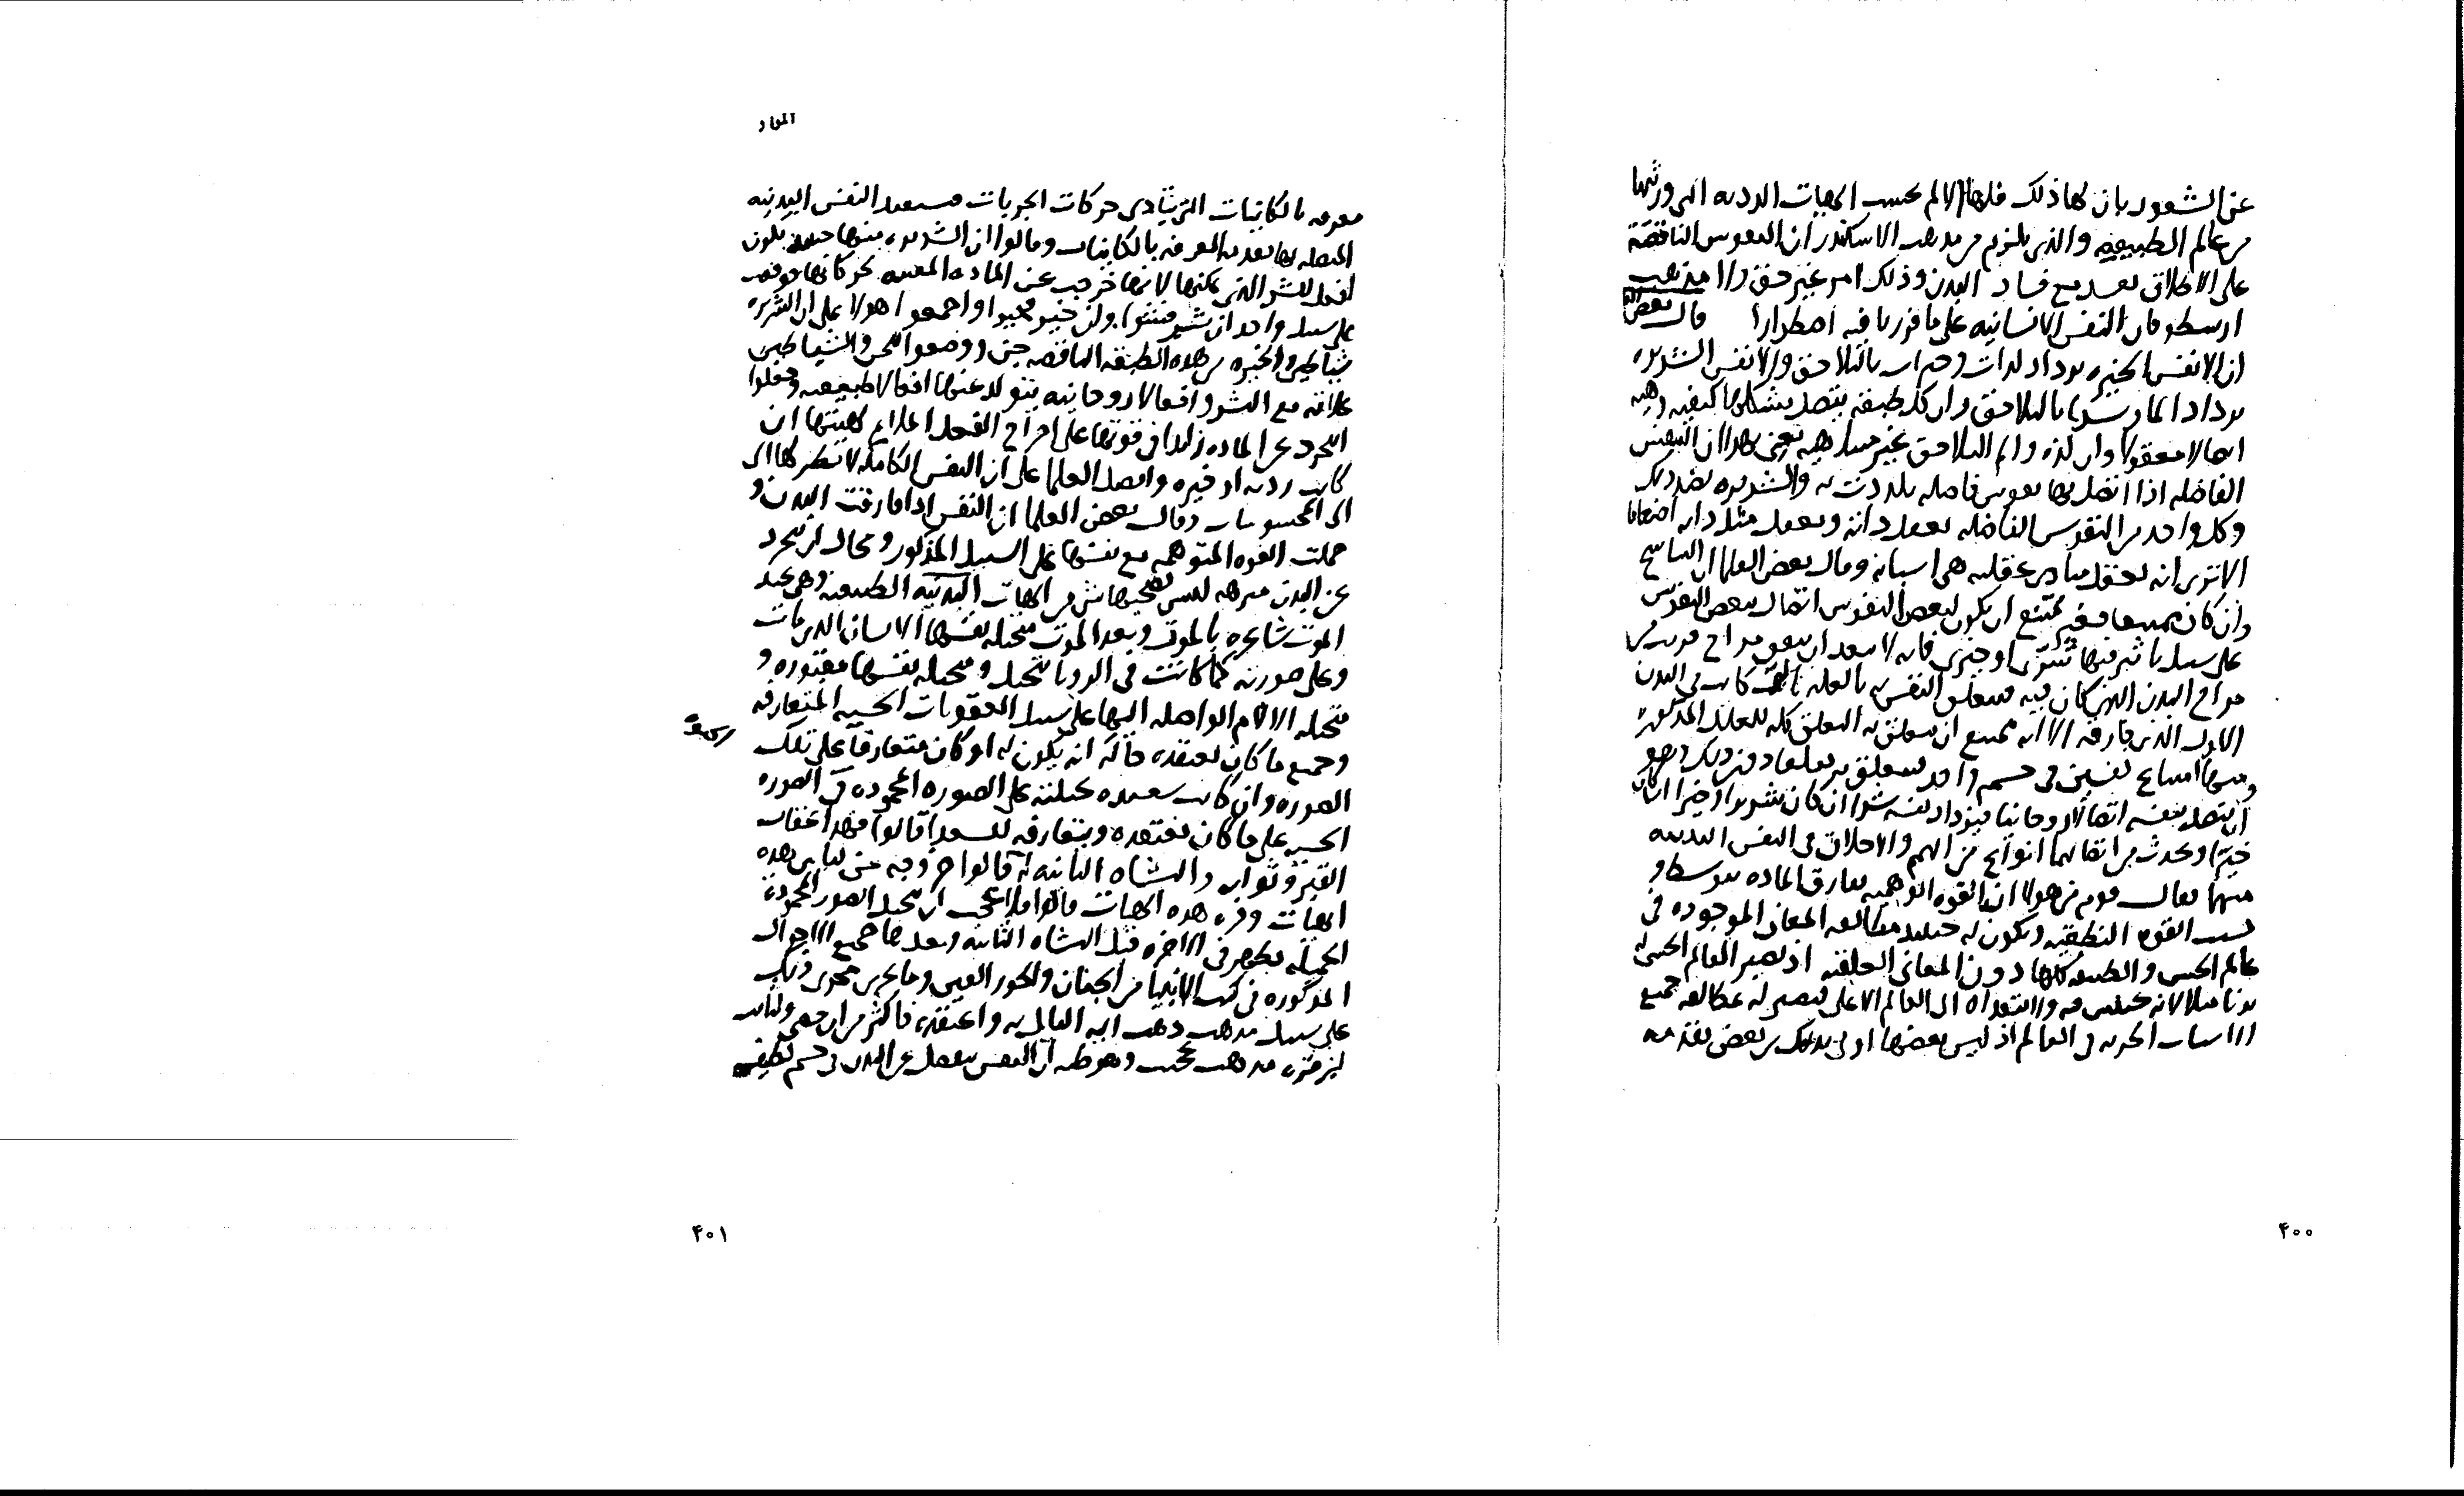 عن الشعور بان لها ذلك فلها الالم بحسب الهيات الرديه التى ورثتها
من عالم الطبيعه والذى يلزم من مذهب الاسكندر ان النفوس الناقصة
على الاطلاق تفسد مع فساد البدن وذلك امر غير حق واما مذهب
ارسطو فان النفس الانسانيه على ما قررنا فيه اضطرارا قال بعض
ان الانفس الخيره تزداد لذات وخيرات بالتلاحق والانفس الشريره
تزداد الما وشرا بالتلاحق وان كل طبقه يتصل بشكلها كيفيه وهيه
اتصالا معقولا وان لذه والم التلاحق بغير متناهيه يعنى بهذا ان النفس
الفاضله اذا اتصل بها نفوس فاضله تلذذت به والشريره بضد ذلك
وكل واحد من النفوس الفاضله يعقل ذاته ويعقل مثل ذاته اضعافا
الا ترى انه يعقل مبادى عقليه هى اسبابه وقال بعض العلما ان التناسخ
وان كان ممتنعا فغير ممتنع ان يكون لبعض النفوس اتصال ببعض النفوس
على سبيل تاثير فيها شرى او خيرى فانه لا يبعد ان يتفق مزاج قريب من
مزاج البدن الذى كان فيه فيتعلق النفس به بالعله التى كانت فى البدن
الاول الذى فارقه الا انه ممتنع ان يتعلق به التعلق كله للعلل المذكوره
ومنها امتناع نفسين فى جسم واحد فيتعلق به تعلقا دون ذلك وهو
ان يتصل بنفسه اتصالا روحانيا فيزداد نفسه شرا ان كان شريرا او خيرا ان كان
خيرا ويحدث من اتصالهما انواع من الهمم والاخلاق فى النفس البدنيه
منهما فقال قوم من هولا ان القوه الوهميه تفارق الماده بتوسط
القوه النطقيه ويكون له حينئذ مطالعه المعانى الموجوده فى
عالم الحس والطبيعه كلها دون المعانى العقليه اذ يصير العالم الحسى له
بدنا مثلا لانه والتقدم الى العالم الاعلى فيصير له مطالعه جميع
الاسباب الجزييه فى العالم اذ ليس بعضها اولى بذلك من بعض بقدمه
المعاد
معرفه بالكاينات التى تتادى حركات الجزيات فيستفيد النفس البدنيه
المتصله بها تقدمه المعرفه بالكاينات وقالوا ان الشريره منها حينئذ يكون
افعل للشر الذى يمكنها لانها خرجت عن الماده المعينه
على سبيل واحد ان شر فشرا وان خير فخيرا واجمعوا هولا على ان الشريره
شياطين والخيره من هذه الطبقه الناقصه جن ووضعوا للجن والشياطين
علاقه مع البشر وافعالا روحانيه يتولد عنها افعالا طبيعيه وجعلوا
التجرد عن الماده زايدا فى قوتها على اخراج الفعل الملايم لهيئتها ان
كانت رديه او خيره واتصل العلما على ان النفس الكامله لا نظر لها الى
الى المحسوسات وقال بعض العلما ان النفس اذا فارقت البدن و
حملت القوه المتوهمه مع نفسها على السبيل المذكور ومحال ان يتجرد
عن البدن منزهه ليس يصحبها شى من الهيات البدنيه الطبيعيه وهى عند
الموت شاعره بالموت وبعد الموت متخيله نفسها الانسان الذى مات
وعلى صورته كما كانت فى الرويا تتخيل ومتخيله نفسها مقبوره و
متخيله الالام الواصله اليها على سبيل العقوبات الحسيه المتعارفه
وجميع ما كان يعتقده حالة انه يكون له او كان متعارفا على تلك
الصوره وان كانت سعيده تخيلته على الصوره المحموده فى الصوره
الحسيه على ما كان يعتقده ويتعارفه للسعدا قالوا فهذا عقاب
القبر وثوابه والنشاه الثانيه قالوا خروجه عن لباس هذه
الهيأت وقبره هذه الهيات قالوا فلا عجب ان يتخيل الصور المحموده
الجميله فيظهر فى الاخره قبل النشاه الثانيه وبعدها جميع الاحوال
المذكوره فى كتب الانبيا من الجنان والحور العين وما يجرى مجرى ذلك
على سبيل مذهب ذهب اليه القايل به واعتقده فاكثر من ان يحصى ولثابت
ابن قره مذهب عجيب وهو ظنه ان النفس ينفصل عن البدن فى جسم لطيف
۴۰۱
۴۰۰